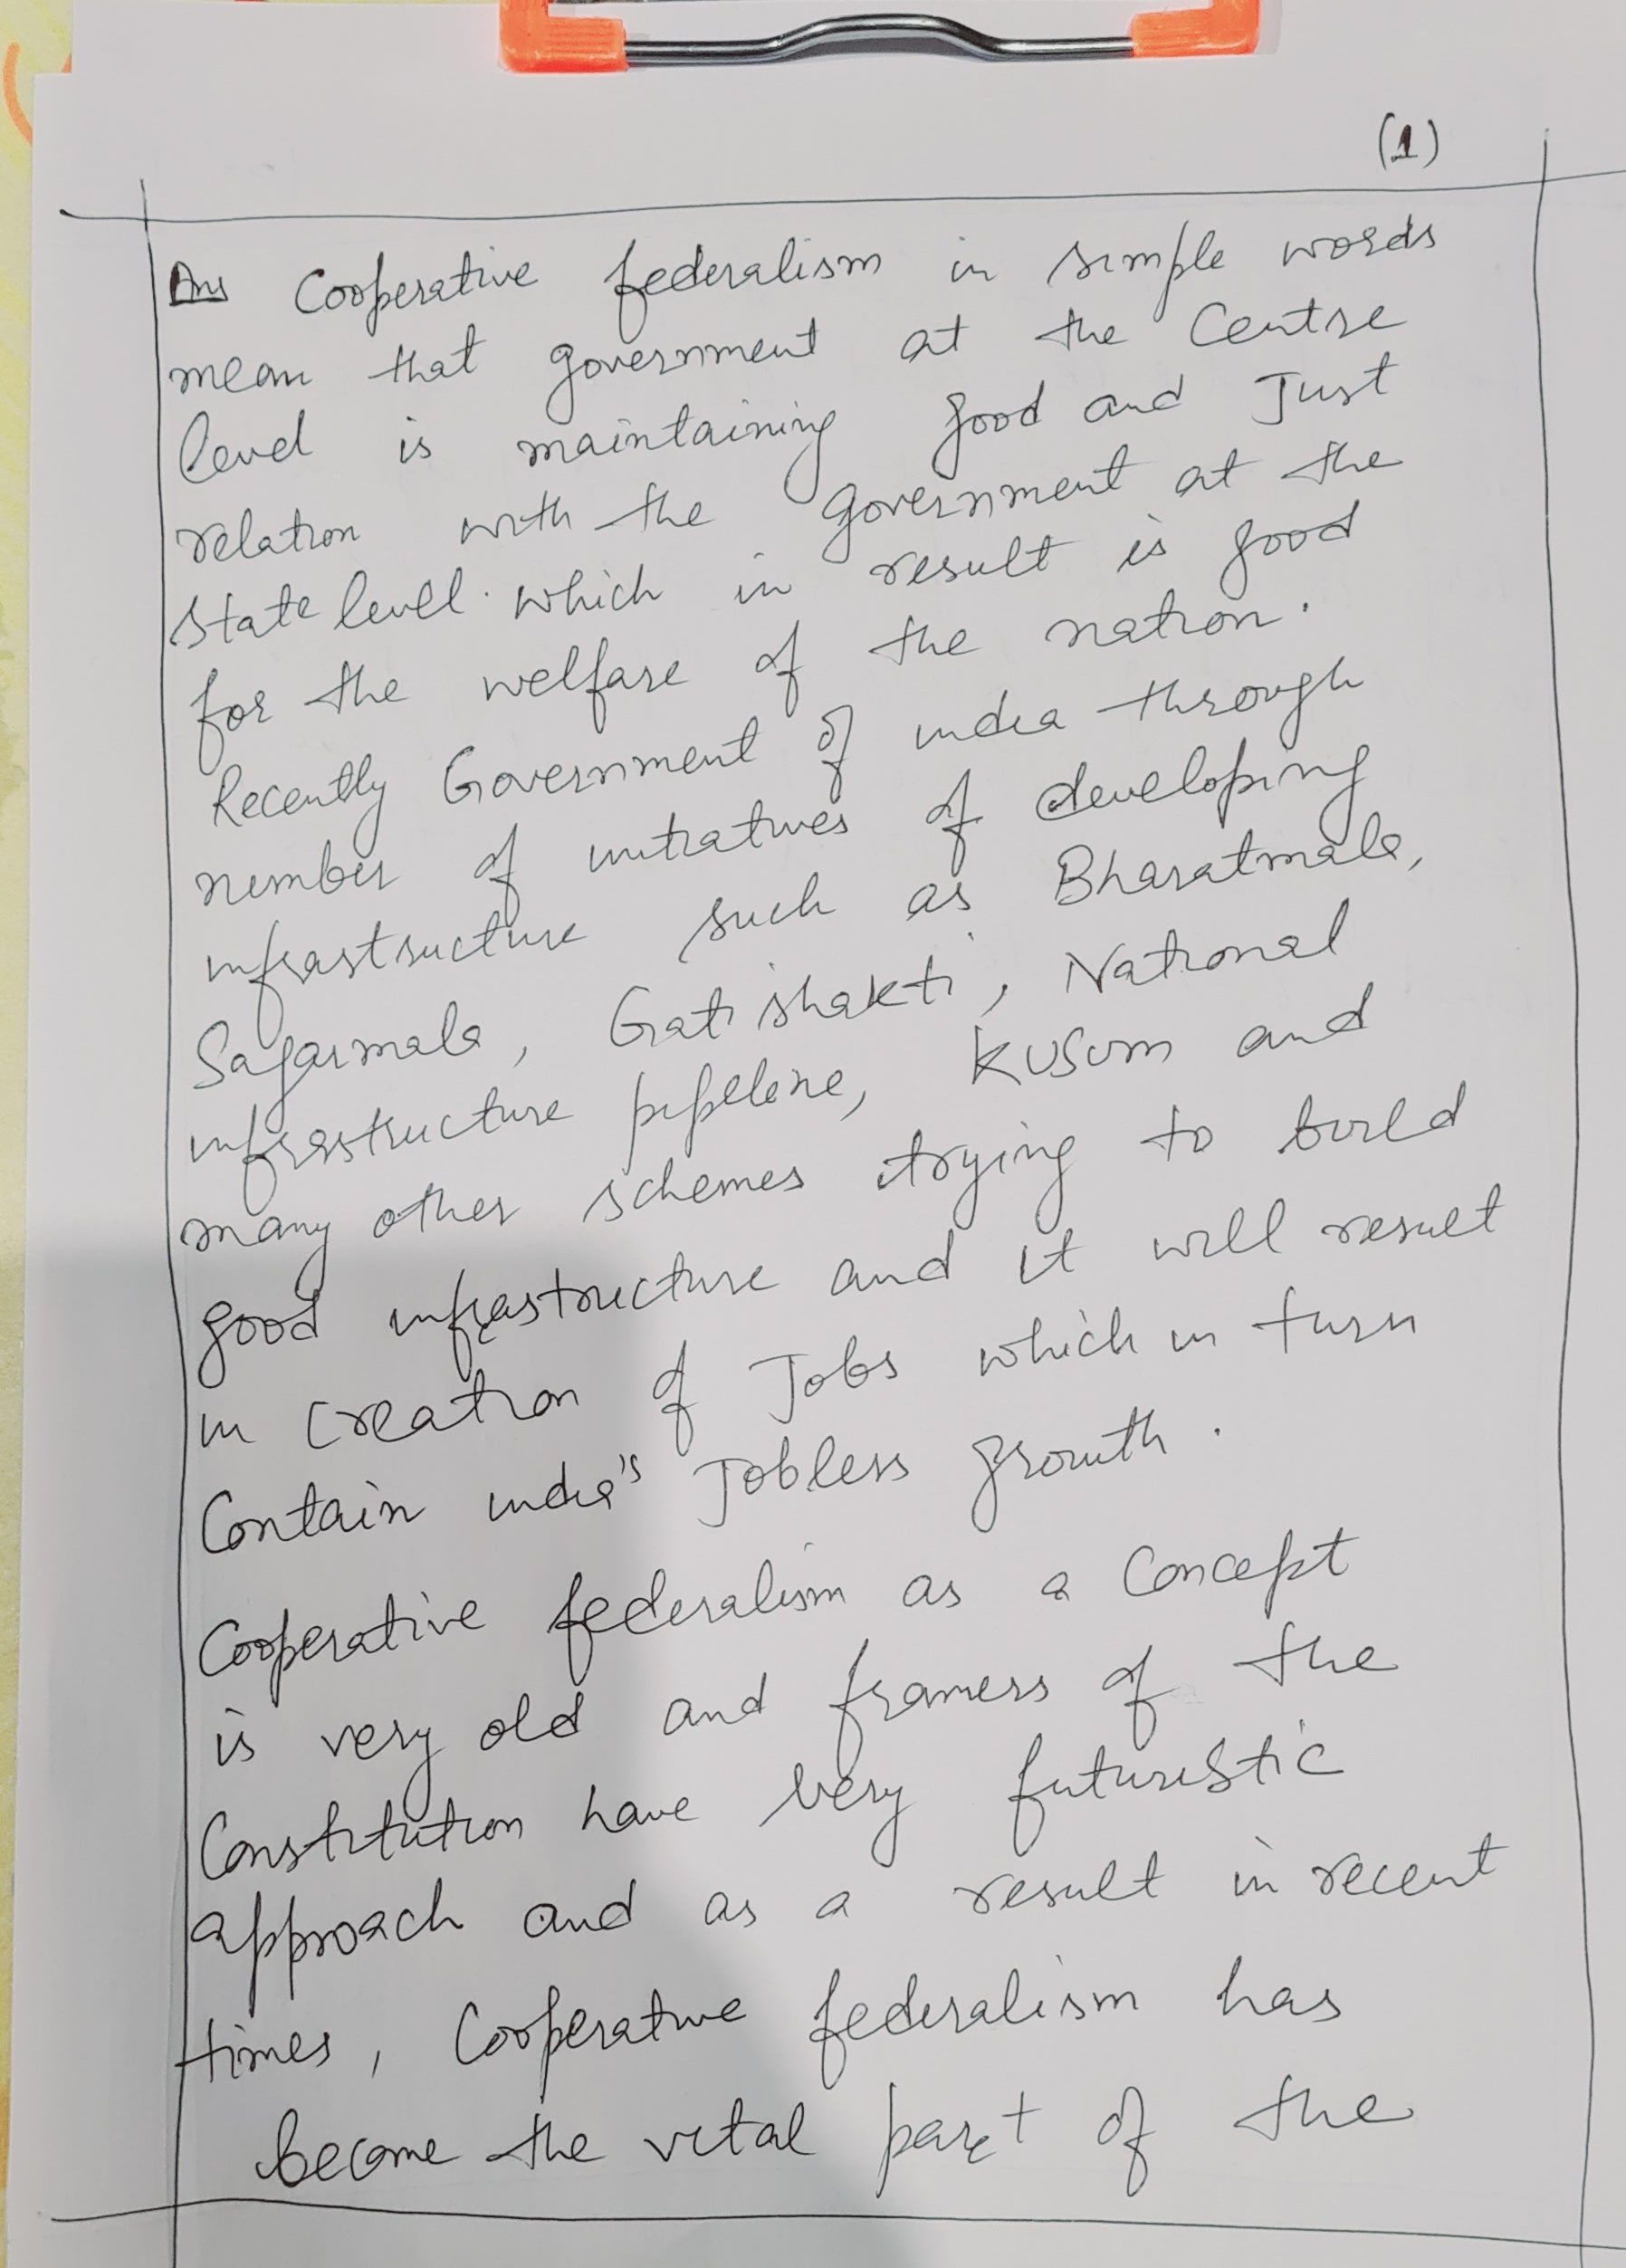 (1)
Ans Cooperative federalism in simple words
mean that government at the Centre
level is maintaining good and Just
relation with the government at the
state level. which in result is good
for the welfare of the nation.
Recently Government of india through
number of initiatives of developing
infrastructure such as Bharatmala,
Sagarmala, Gati shakti, National
infrastructure pipeline, KUSUM and
many other schemes trying to build
good infrastructure and it will result
in creation of Jobs which in turn
Contain india's Jobless growth.
Cooperative federalism as a Concept
is very old and framers of the
Constitution have very futuristic
approach and as a result in recent
times, Cooperative federalism has
become the vital part of the